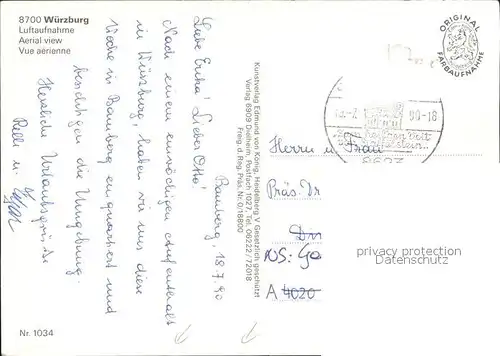 8700 Würzburg
Luftaufnahme
Aerial view
Vue aérienne
Bamberg, 18.7.90
Liebe Erika! Lieber Otto!
Nach einem einwöchigen Aufenthalt
in Würzburg, haben wir uns diese
Woche in Bamberg einquartiert und
besichtigen die Umgebung.
Herzliche Urlaubsgrüße
Relli u.
Nr. 1034
Kunstverlag Edmund von König, Heidelberg V Gesetzlich geschützt
Verlag 6909 Dielheim, Postfach 1027, Tel. 06222/72018
Freig. d. Reg. Präs. Nr. G/18800
ORIGINAL
FARBAUFNAHME
90-18
8623
Herrn u. Frau
Präs. Dr
A 4020
privacy protection
Datenschutz